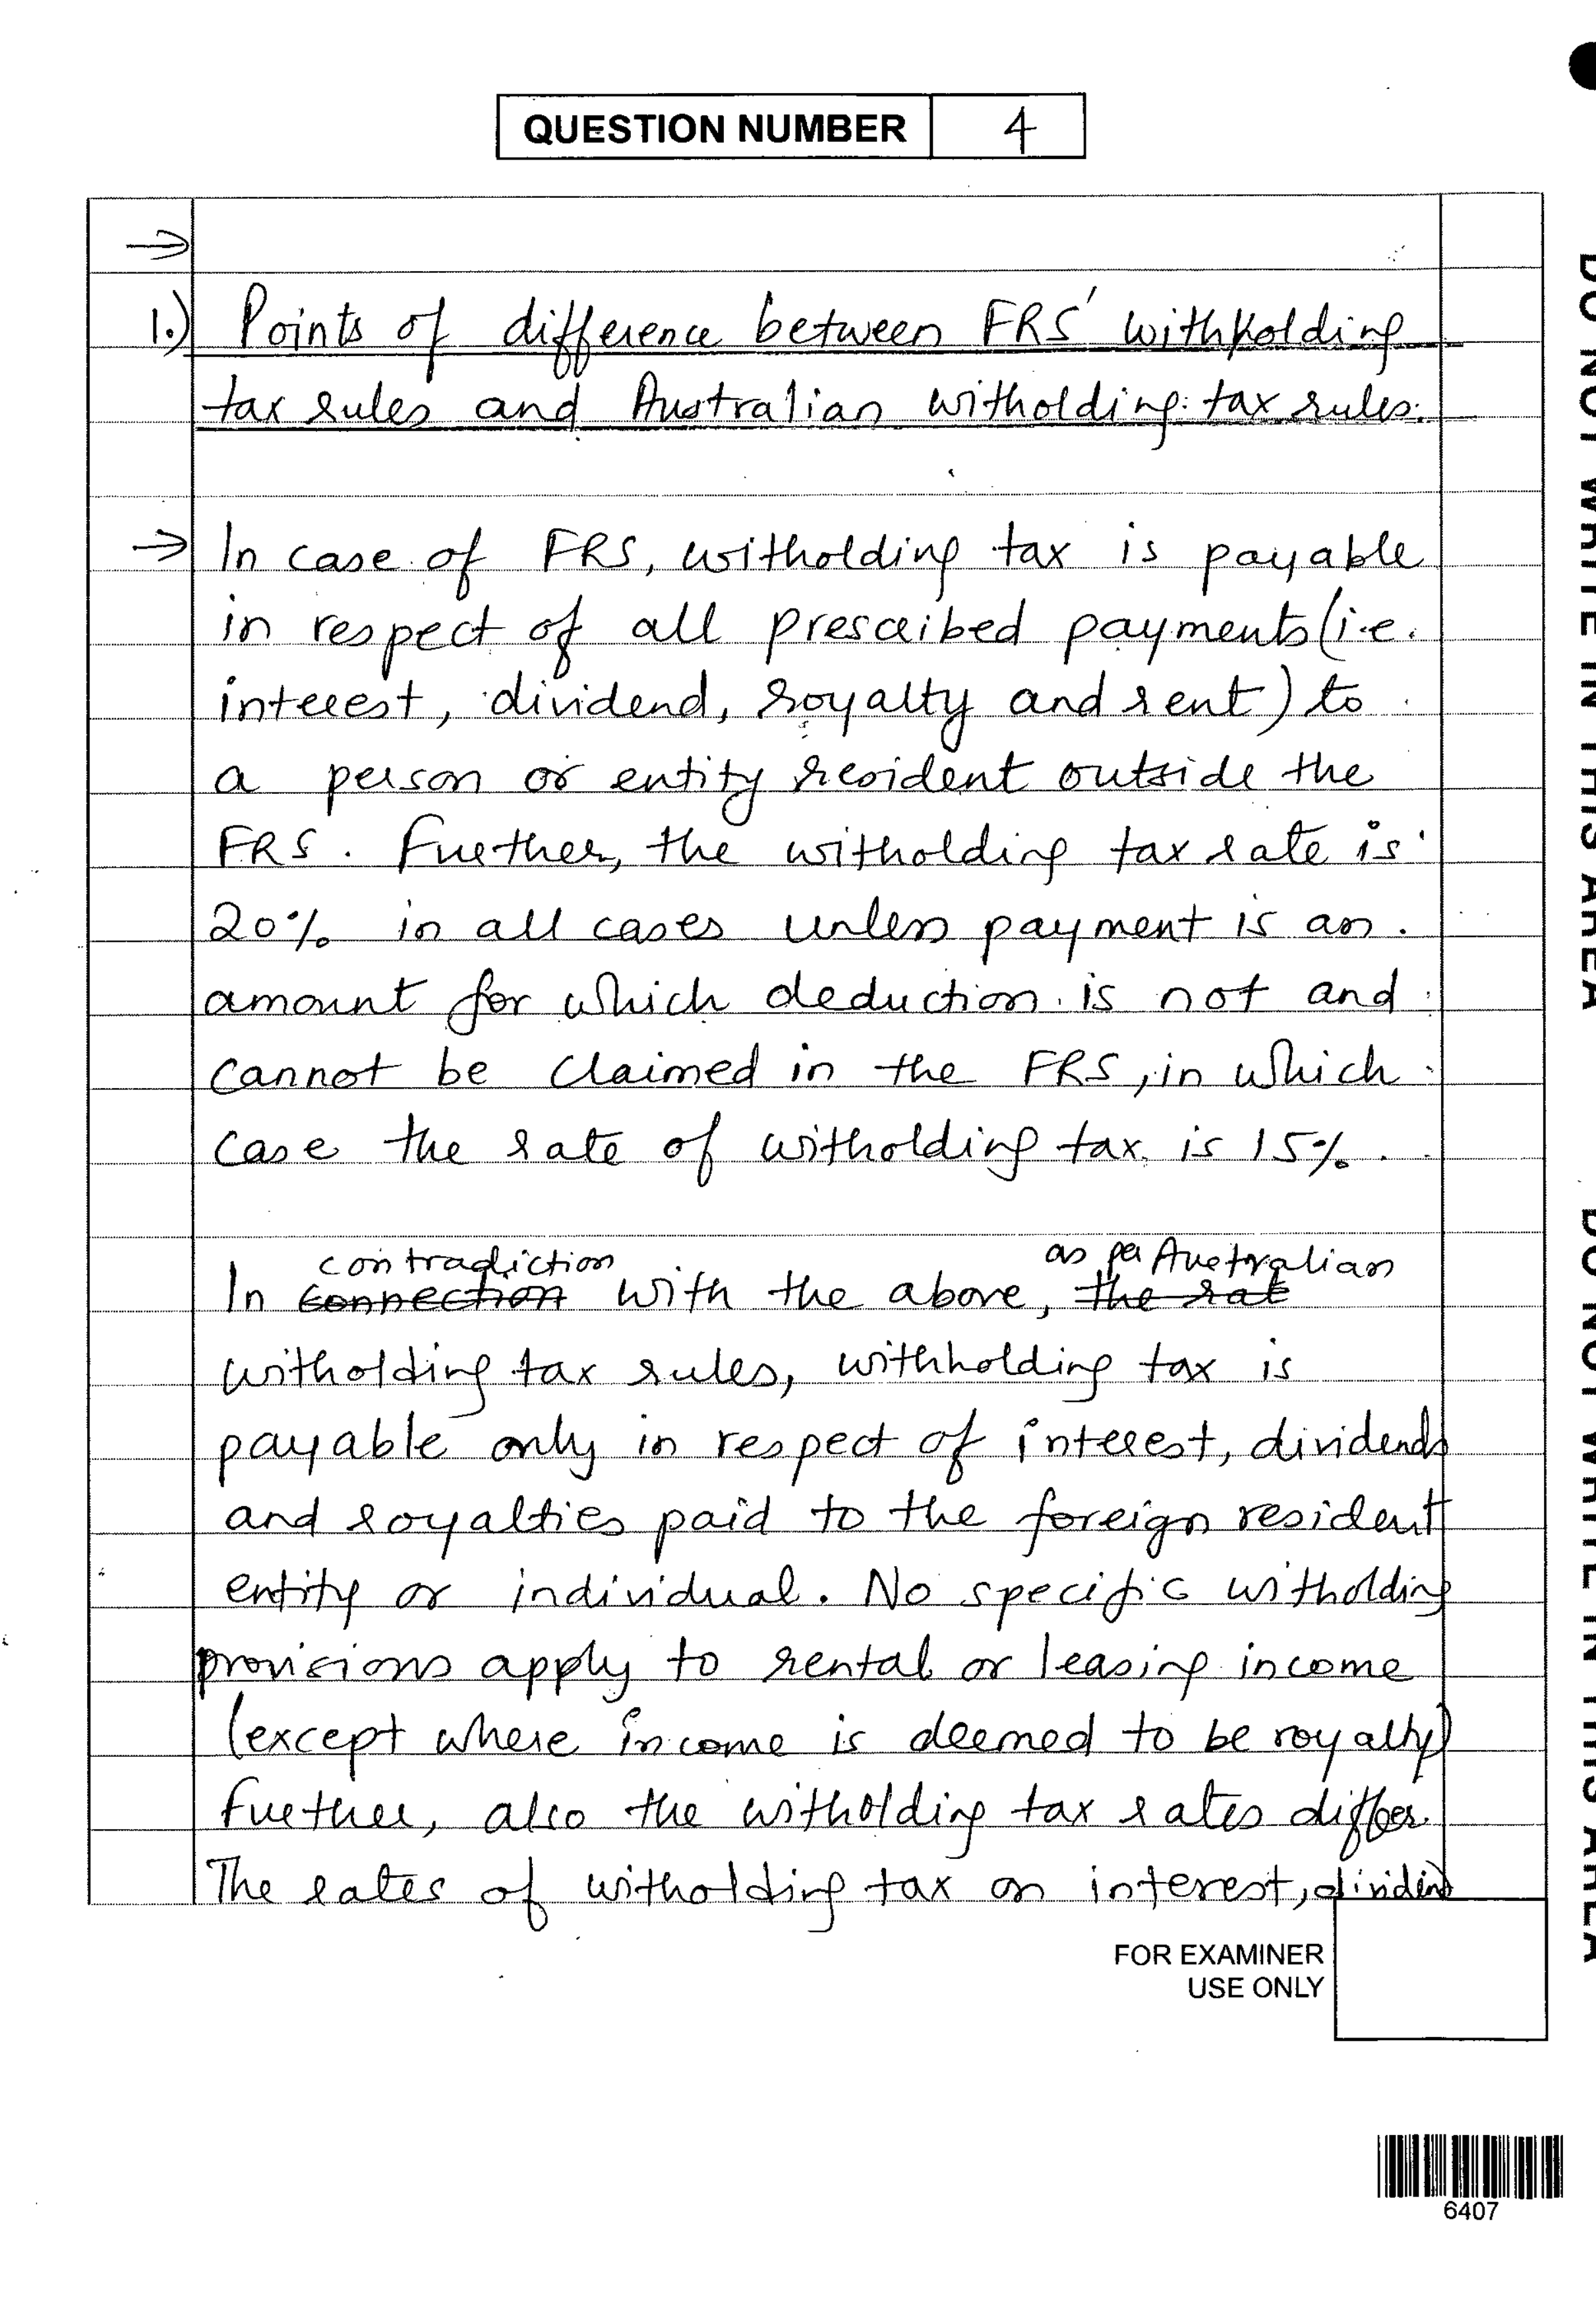 QUESTION NUMBER 4
→
1.) Points of difference between FRS' withholding
tax rules and Australian witholding tax rules.
→ In case of FRS, witholding tax is payable
in respect of all prescribed payments (i.e.
interest, dividend, royalty and rent) to
a person or entity resident outside the
FRS. Further, the witholding tax rate is
20% in all cases unless payment is an
amount for which deduction is not and
cannot be claimed in the FRS, in which
case the rate of witholding tax is 15%.
contradiction as per Australian
In connection with the above, the rat
witholding tax rules, withholding tax is
payable only in respect of interest, dividends
and royalties paid to the foreign resident
entity or individual. No specific witholding
provisions apply to rental or leasing income
(except where income is deemed to be royalty)
further, also the witholding tax rates differ.
The rates of witholding tax on interest, dividend
FOR EXAMINER
USE ONLY
6407
DO NOT WRITE IN THIS AREA
DO NOT WRITE IN THIS AREA